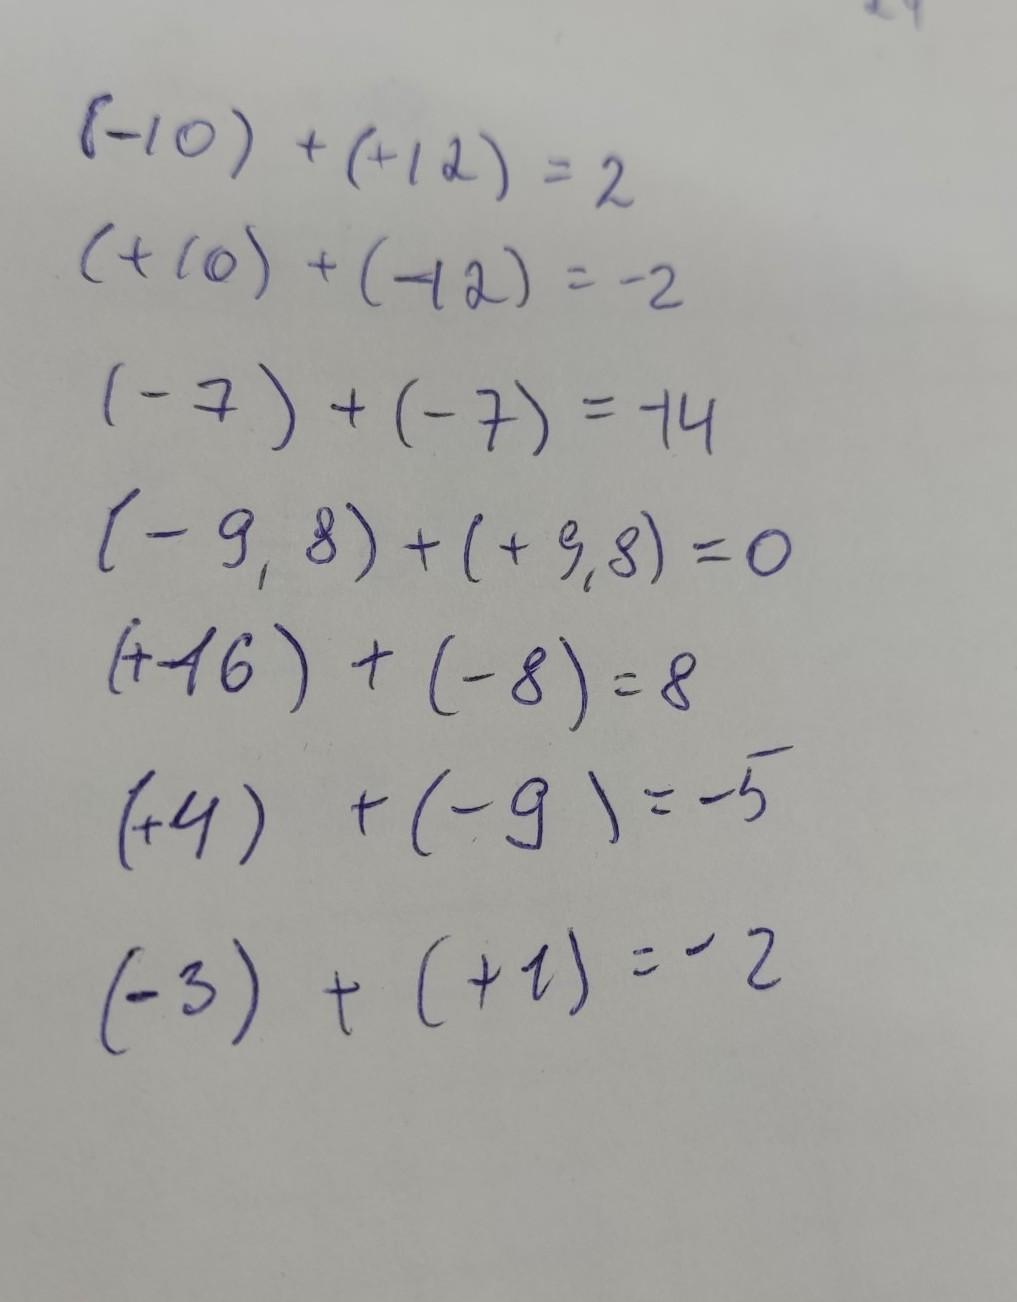 (-10) + (+12) = 2
(+10) + (-12) = -2
(-7) + (-7) = -14
(-9,8) + (+9,8) = 0
(+16) + (-8) = 8
(+4) + (-9) = -5
(-3) + (+1) = -2